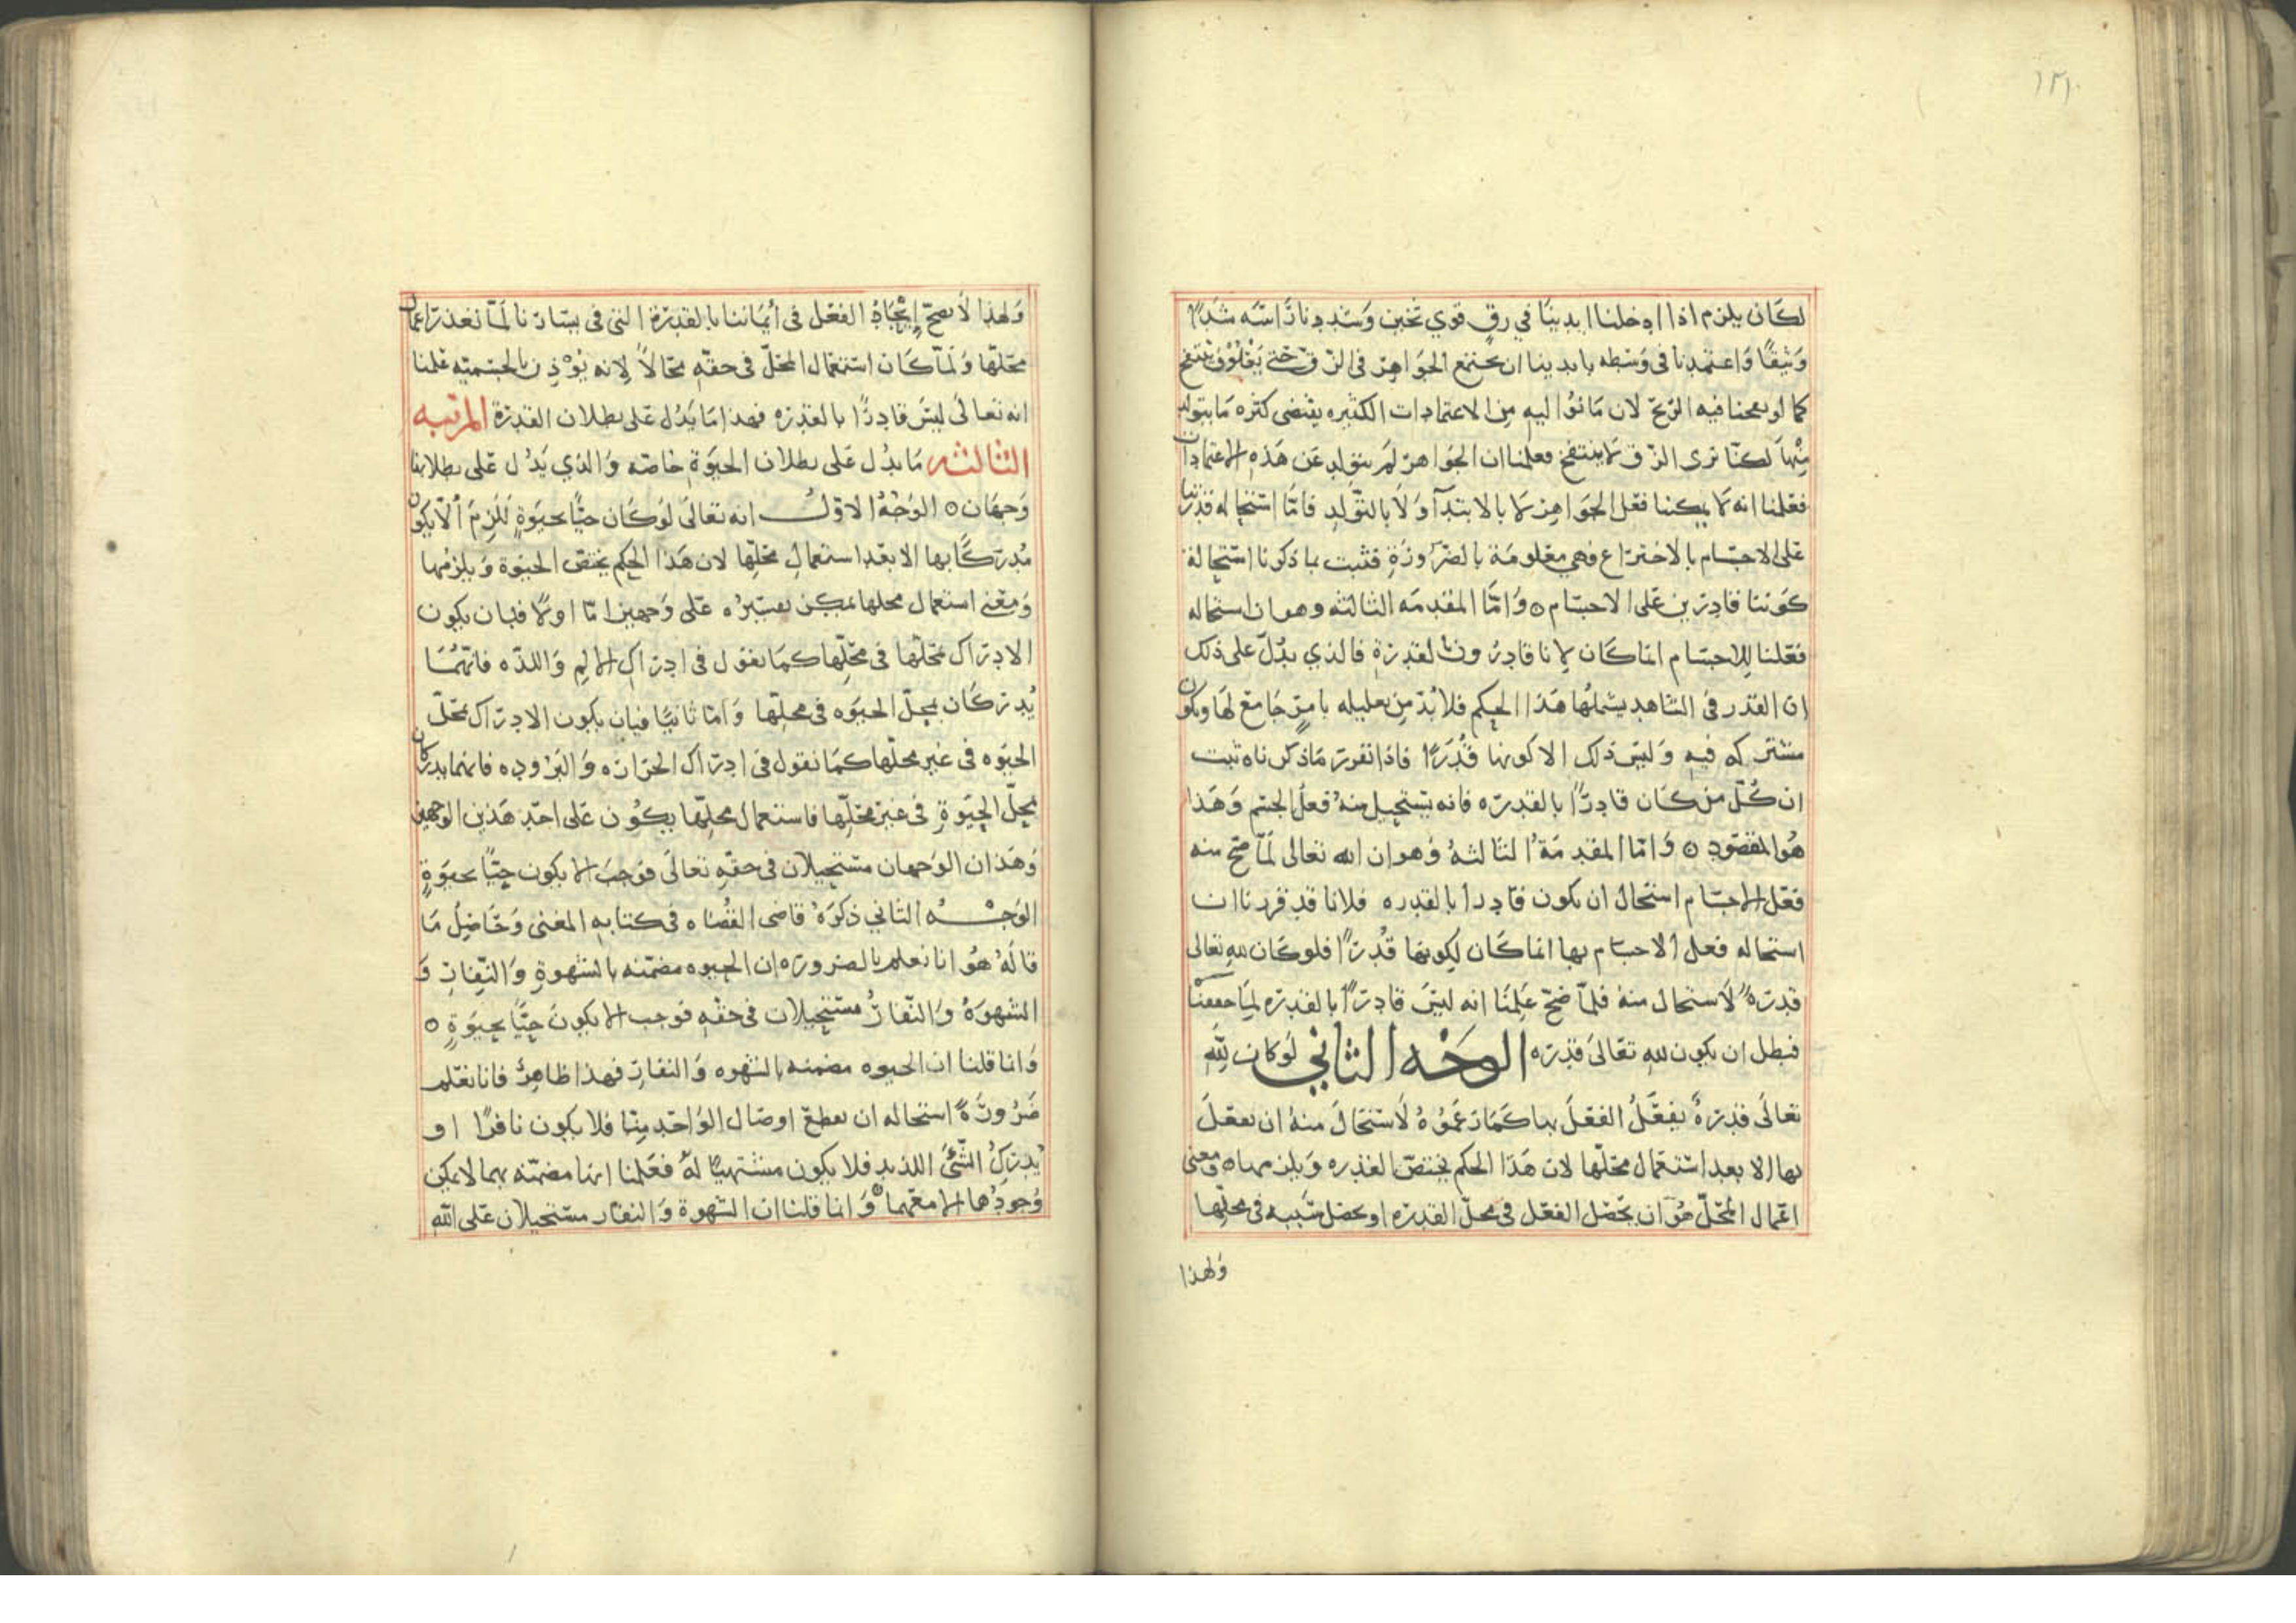 ١٣١
لكان يلزم اذا ادخلنا ايدينا في زق قوي ثخين وسددنا رأسه شدًا
وثيقًا واعتمدنا في وسطه بايدينا ان تجتمع الجواهر في الزق حتى ينتفخ
كما لو نفخنا فيه الريح لان ما نوا ليه من الاعتمادات الكثيره يقتضى كثره ما يتولد
منها لكنا نرى الزق لا ينتفخ فعلمنا ان الجواهر لم يتولد عن هذه الاعتمادات
فعلمنا انه لا يمكننا فعل الجواهر لا بالابتدآ ولا بالتولد فامّا استحاله قدرتنا
على الاجسام بالاختراع فهي معلومة بالضرورة فثبت بما ذكرنا استحالة
كوننا قادرين على الاجسام ٥ وامّا المقدمه الثالثه وهو ان استحاله
فعلنا للاجسام انما كان لانا قادرون بالقدرة فالذي يدل على ذلك
ان القدر في الشاهد يشملها هذا الحكم فلا بدّ من تعليله بامر جامع لها ويكون
مشتركه فيه وليس ذلك الا كونها قُدَرًا فاذا تقرر ما ذكرناه ثبت
ان كلّ من كان قادرًا بالقدره فانه يستحيل منه فعلُ الجسم وهذا
هو المقصود ٥ وامّا المقدمةُ الثالثهُ وهو ان الله تعالى لمّا صح منه
فعل الاجسام استحال ان يكون قادرا بالقدره فلانا قد قررنا ان
استحاله فعل الاجسام بها انما كان لكونها قُدرًا فلو كان لله تعالى
قدرة لاستحال منه فلمّا صحّ علمنا انه ليس قادرًا بالقدره لما حققنا
فبطل ان يكون لله تعالى قدره الوجه الثاني لو كان لله
تعالى قدرةٌ يفعَلُ الفعلَ بها كما زعموهُ لاستحالَ منهُ ان يفعلَ
بها الا بعد استعمال محلّها لان هذا الحكم يختصّ القدره ويلزمها ٥ ومعنى
اعمال المحلّ هُوَ ان يحصل الفعل في محلّ القدره او يحصل سَببه في محلّها
ولهذا
ولهذا لا يصحّ إيجادُ الفعل في أيماننا بالقدرة التي في يسارنا لمّا تعذر اعمال
محلّها ولمّا كان استعمال المحلّ في حقّه محالاً لانه يُؤْذِن بالجسميّه علمنا
انه تعالى ليسَ قادرًا بالقدره فهذا مَا يَدُل على بطلان القدرة المرتبه
الثالثه مَا يدُل عَلى بطلان الحيَوة خاصّه والذي يَدُل عَلى بطلانها
وَجهان ٥ الوَجْهُ الاوّلُ انه تعالى لو كان حيًّا بحيوةٍ للزمَ ألّا يكون
مُدركًا بها الا بعد استعمال محلّها لان هذا الحكم يختصّ الحيوة ويلزمها
ومعنى استعمال محلها يمكن تفسيرُه على وَجهين امّا اولًا فبان يكون
الادراك بمحلّها في محلّها كما نقول في ادراك الالم واللذّه فانّهُما
يُدركان بمحلّ الحيوَه في محلّها وَامّا ثانيًا فبان يكون الادراك بمحلّ
الحيوَه في غير محلّها كما نقول في ادراك الحراره وَالبرُوده فانهما يدركان
بمحلّ الحيَوةِ في غير محلّها فاستعمال محلّها يكُون على احد هَذين الوجهين
وهَذان الوَجهان مستحيلان في حقّه تعالى فوجبَ الا يكون حيًّا بحيَوةٍ
الوَجْــــه الثاني ذكرَهُ قاضى القُضاه في كتابه المغنى وَحَاصِلُ مَا
قالهُ هُوَ انا نعلم بالضروره ان الحيوه مضمّنه بالشهوةِ وَالنّفار وَ
الشهوَةُ وَالنّفارُ مستحيلان في حقّه فوجب الا يكونَ حيًّا بحيَوةٍ ٥
وَانما قلنا ان الحيوه مضمنه بالشهوه وَالنفار فهذا ظاهِرٌ فانا نعلم
ضَرُورَةً استحاله ان يقطع اوصال الوَاحد مِنّا فلا يكون نافرًا او
يُدرِكُ الشّئَ اللذيد فلا يكون مشتهيًا لهُ فعَلمنا انها مضمّنه بهما لا يمكن
وُجودُها الا معَهما ٥ وَ انما قلنا ان الشهوة وَالنفار مستحيلان عَلى اللهِ